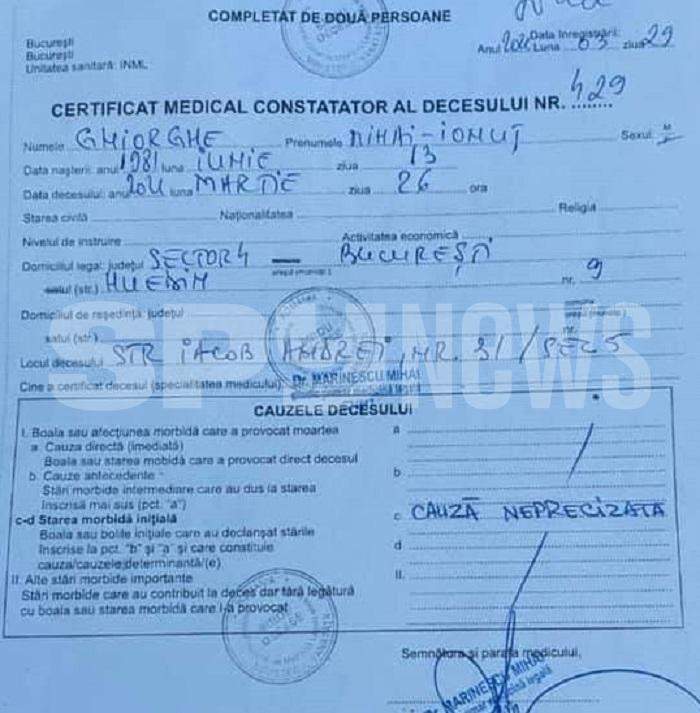 COMPLETAT DE DOUĂ PERSOANE
Data înregistrării:
București
București
Unitatea sanitară: INML
Anul 2021 Luna 03 ziua 29
CERTIFICAT MEDICAL CONSTATATOR AL DECESULUI NR. 429
Numele GHIORGHE Prenumele MIHAI-IONUȚ Sexul M
Data nașterii: anul 1981 luna IUNIE ziua 13
Data decesului: anul 2021 luna MARTIE ziua 26 ora
Starea civilă Naționalitatea Religia
Nivelul de instruire Activitatea economică
Domiciliul legal: județul SECTOR 4 BUCUREȘTI
satul (str.) HUEDIN nr. 9
Domiciliul de reședință: județul
satul (str.) nr.
SPYNEWS
Locul decesului STR IACOB ANDREI, NR. 31/SEC 5
Cine a certificat decesul (specialitatea medicului) Dr. MARINESCU MIHAI
CAUZELE DECESULUI
I. Boala sau afecțiunea morbidă care a provocat moartea a
a. Cauza directă (imediată)
Boala sau starea mobidă care a provocat direct decesul
b. Cauze antecedente b
Stări morbide intermediare care au dus la starea
înscrisă mai sus (pct. "a")
c-d Starea morbidă inițială c CAUZĂ NEPRECIZATĂ
Boala sau bolile inițiale care au declanșat stările
înscrise la pct. "b" și "a" și care constituie d
cauza/cauzele determinantă/(e)
II. Alte stări morbide importante II.
Stări morbide care au contribuit la deces dar fără legătură
cu boala sau starea morbidă care l-a provocat
Semnătura și parafa medicului,
Dr. MARINESCU MIHAI